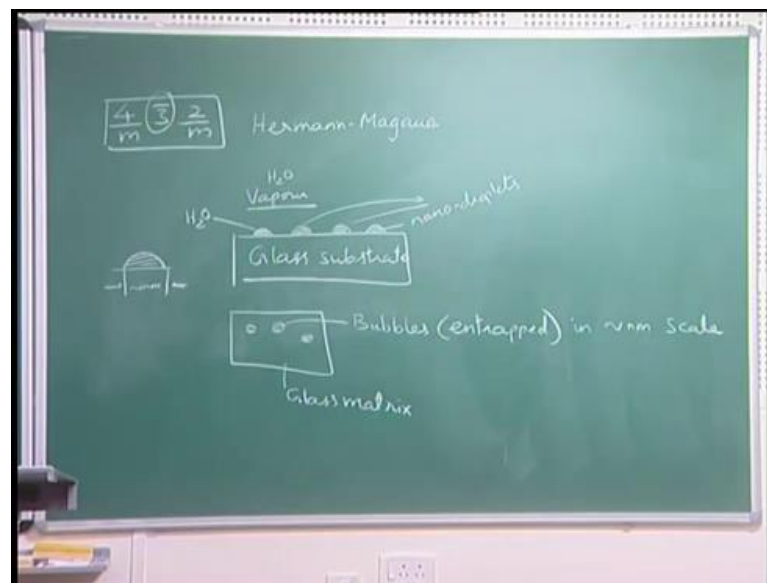 4/m 3̅ 2/m Hermann-Magaun
H₂O
Vapour
H₂O
nano-droplets
Glass substrate
~nm
Bubbles (entrapped) in ~nm scale
Glass matrix